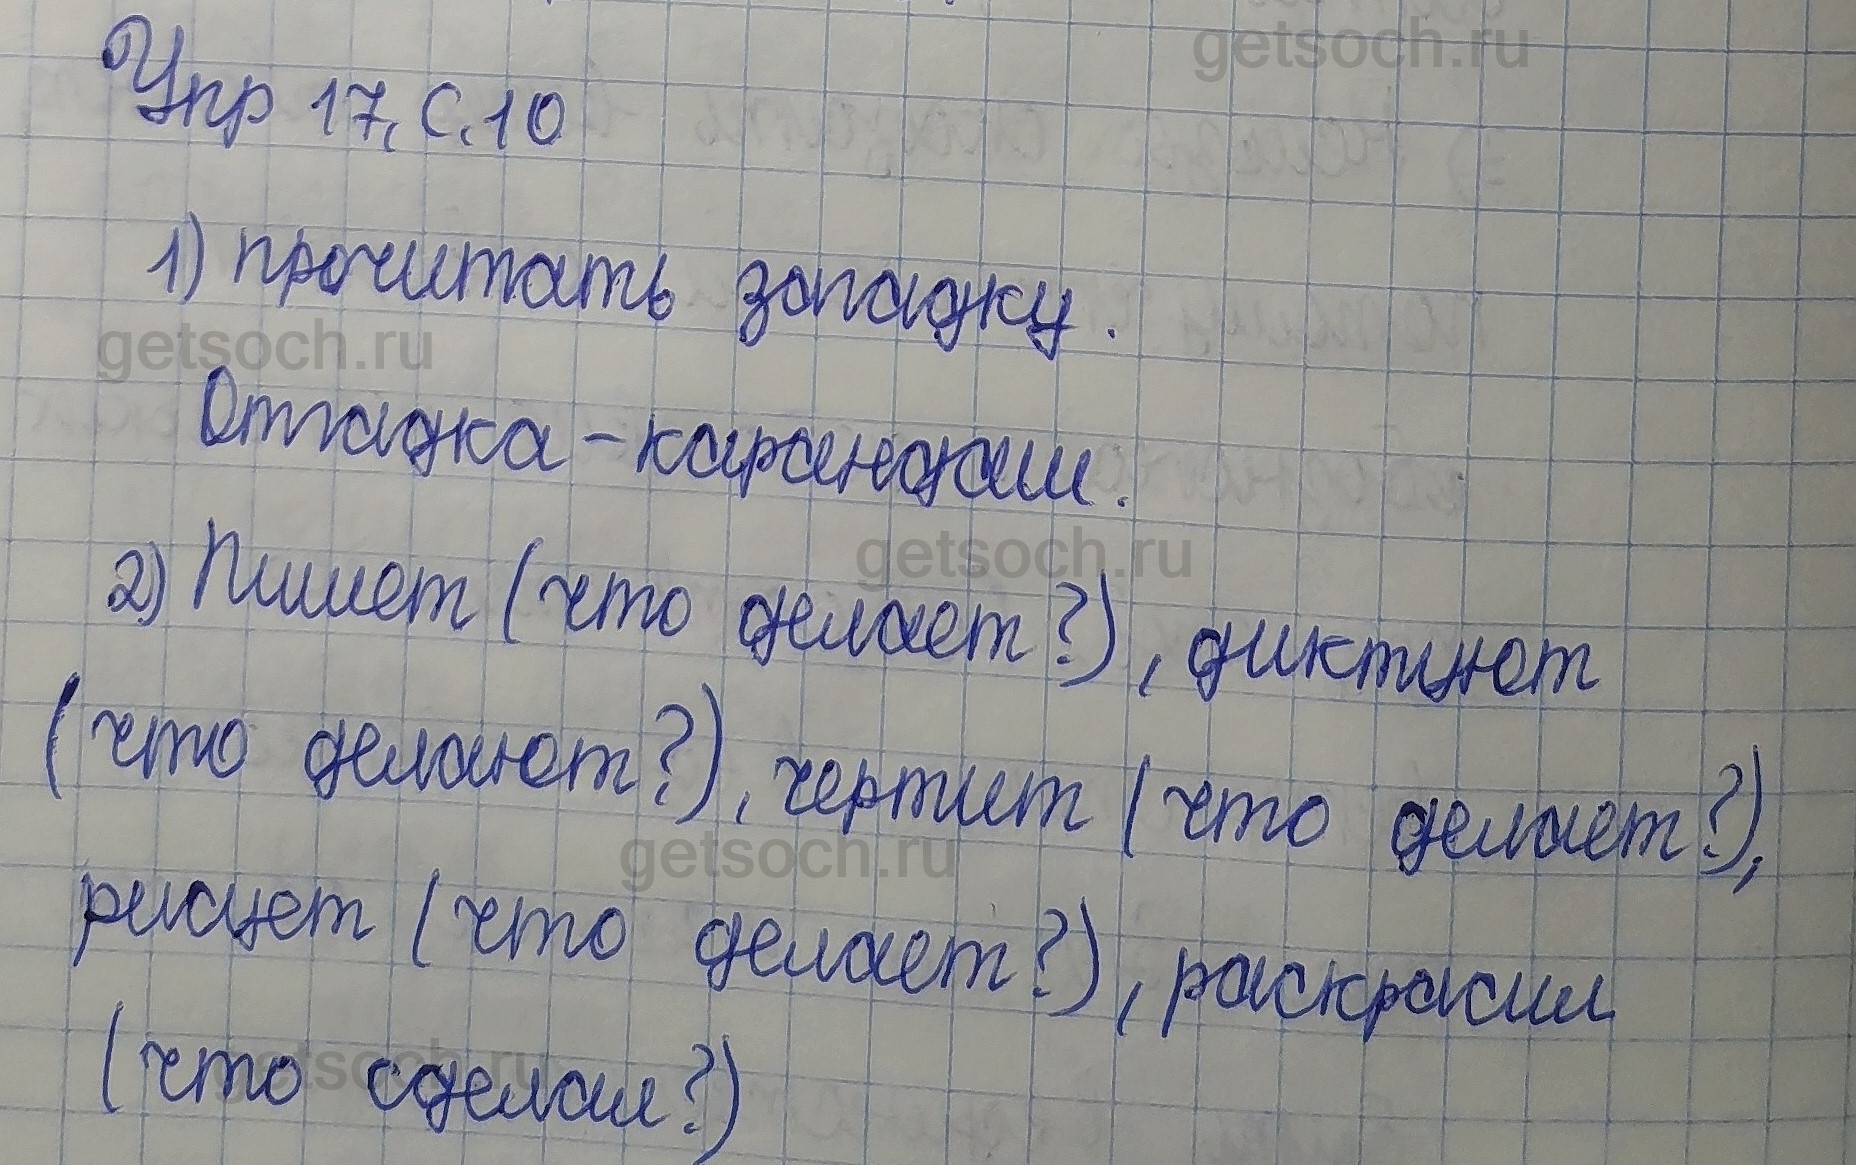 getsoch.ru
Упр 17, С.10
1) прочитать загадку.
getsoch.ru
Отгадка – карандаш.
getsoch.ru
2) Пишет (что делает?), диктуют
(что делают?), чертит (что делает?),
getsoch.ru
рисует (что делает?), раскрасил
getsoch.ru
(что сделал?)